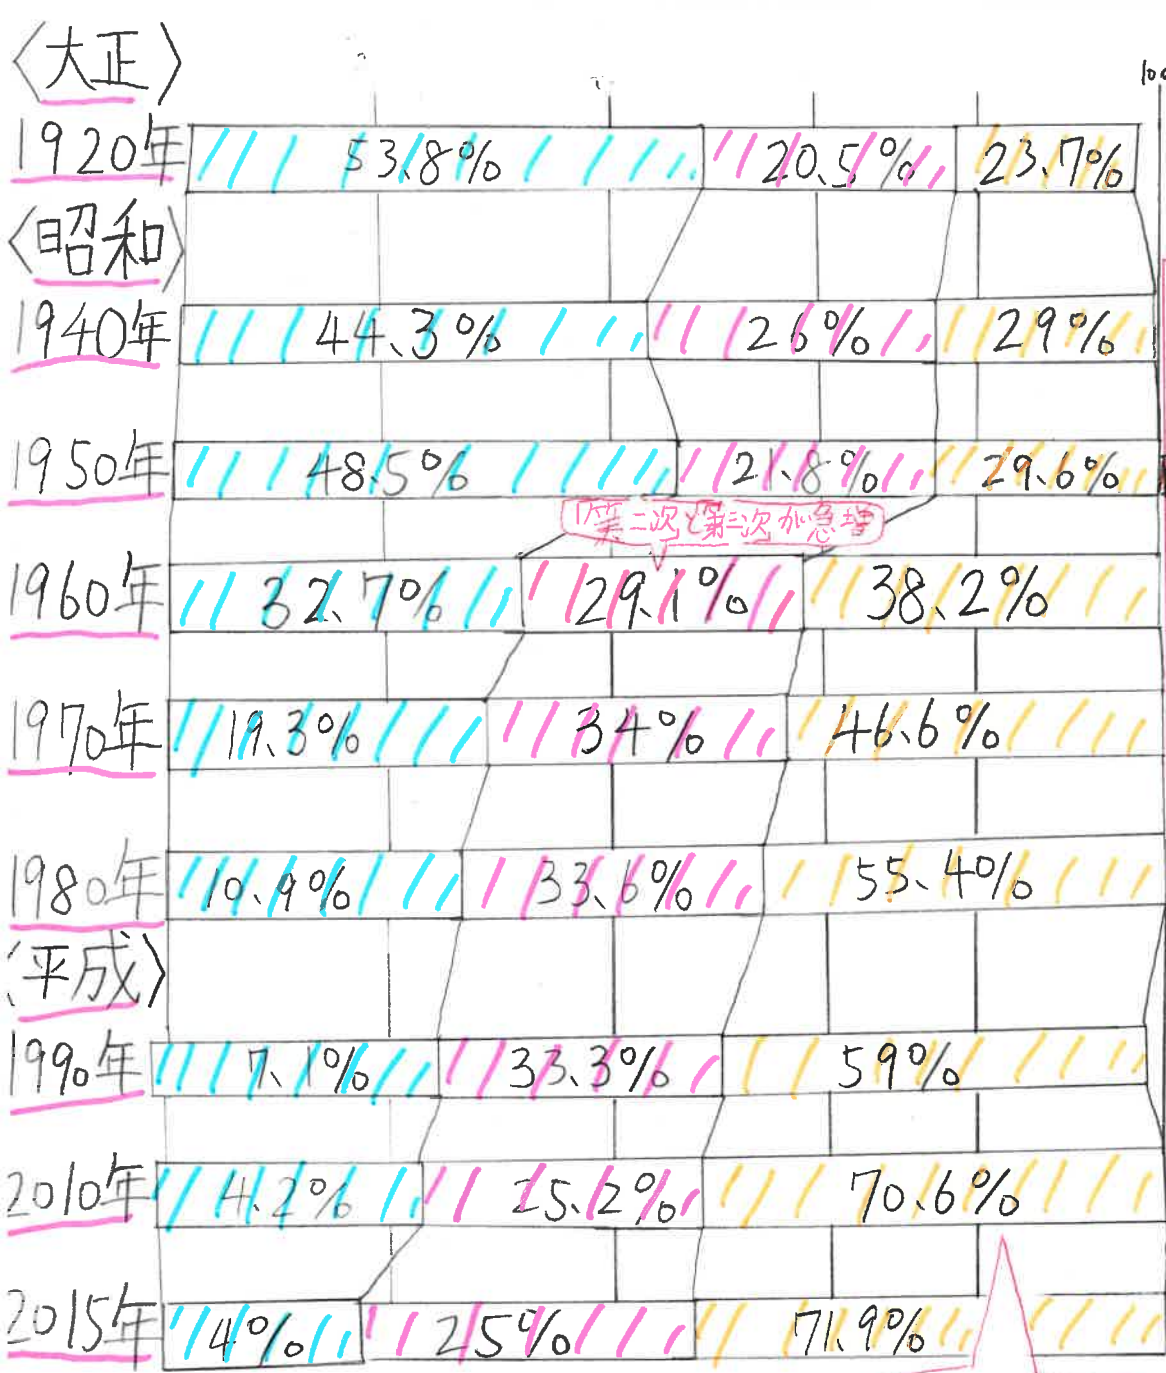 〈大正〉
100
1920年 53.8% 20.5% 23.7%
〈昭和〉
1940年 44.3% 26% 29%
1950年 48.5% 21.8% 29.6%
第二次と第三次が急増
1960年 32.7% 29.1% 38.2%
1970年 19.3% 34% 46.6%
1980年 10.9% 33.6% 55.4%
〈平成〉
1990年 7.1% 33.3% 59%
2010年 4.2% 25.2% 70.6%
2015年 4% 25% 71.9%